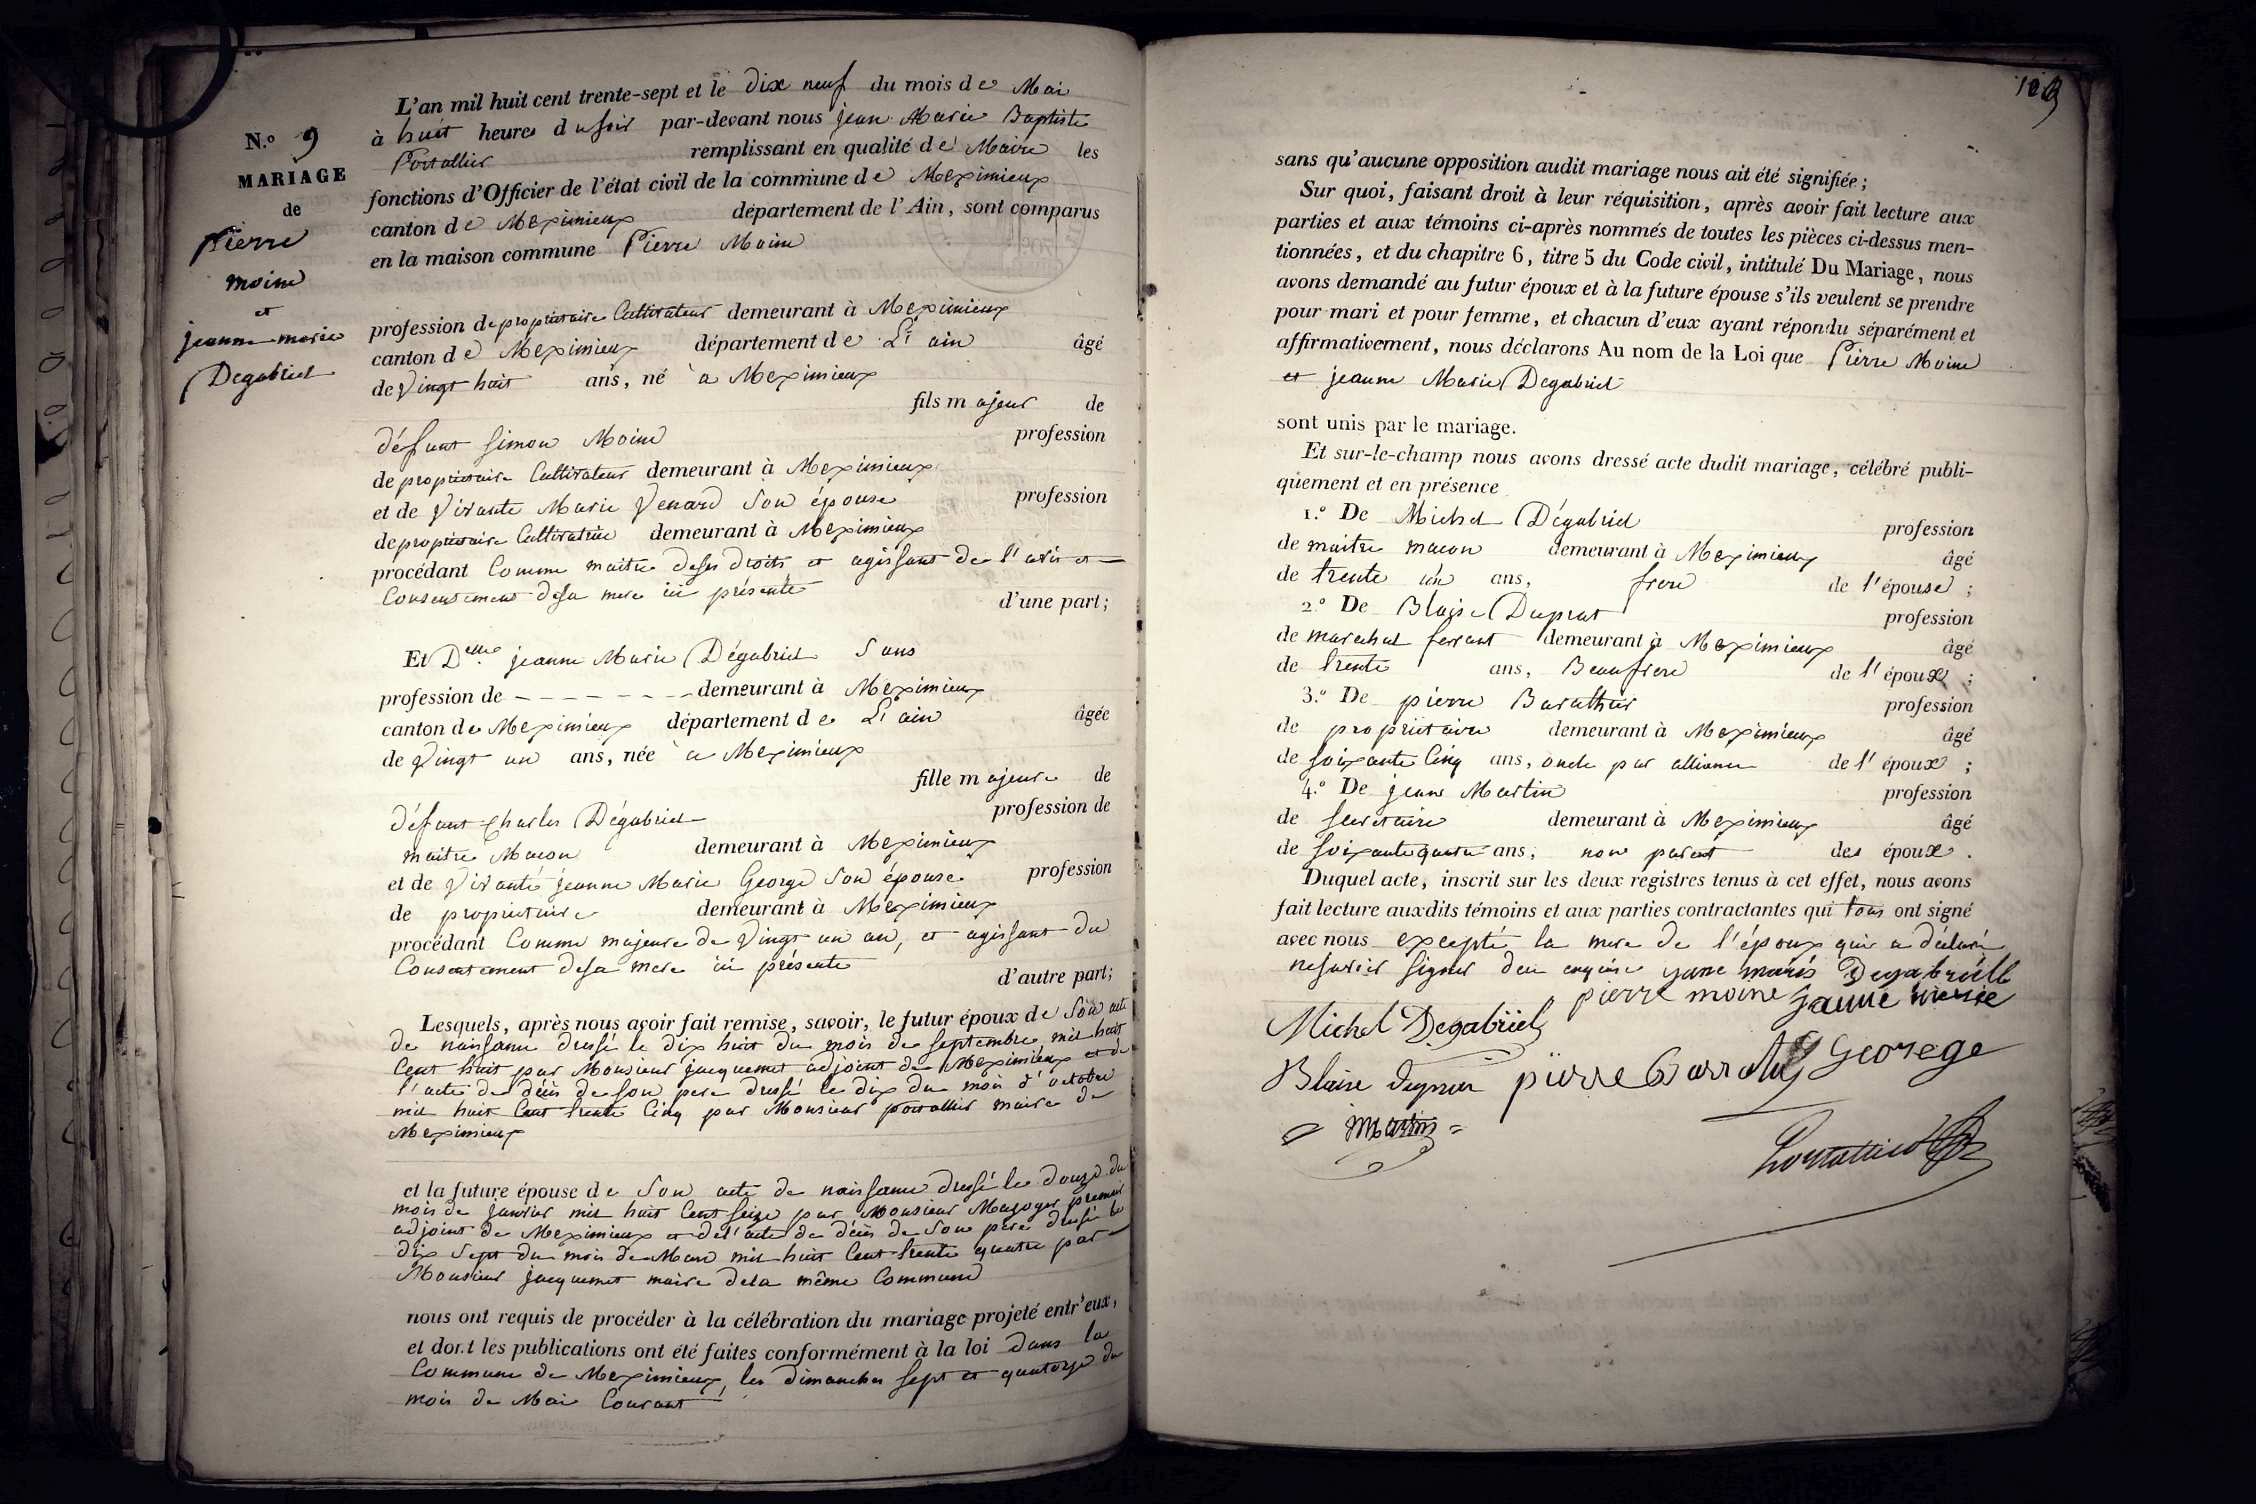 N.o 9
MARIAGE
de
Pierre
moine
et
jeanne marie
Degabriel
L'an mil huit cent trente-sept et le dix neuf du mois de Mai
à huit heures du soir par-devant nous jean Marie Baptiste
Portallier remplissant en qualité de Maire les
fonctions d'Officier de l'état civil de la commune de Meximieux
canton de Meximieux département de l'Ain, sont comparus
en la maison commune Pierre Moine
profession de propriétaire Cultivateur demeurant à Meximieux
canton de Meximieux département de L'ain âgé
de Vingt huit ans, né à Meximieux
fils majeur de
défunt Simon Moine profession
de propriétaire Cultivateur demeurant à Meximieux
et de Vivante Marie Venard Son épouse profession
de propriétaire Cultivatrice demeurant à Meximieux
procédant Comme maitre de ses droits et agissant de l'avis et
Consentement de sa mere ici présente d'une part;
Et Delle jeanne Marie Dégabriel Sans
profession de - - - - - - - demeurant à Meximieux
canton de Meximieux département de L'ain âgée
de Vingt un ans, née à Meximieux
fille majeure de
défunt Charles Dégabriel profession de
maitre Macon demeurant à Meximieux
et de Vivante jeanne Marie George Son épouse profession
de propriétaire demeurant à Meximieux
procédant Comme majeure de Vingt un an, et agissant du
Consentement de sa mere ici présente d'autre part;
Lesquels, après nous avoir fait remise, savoir, le futur époux de Son acte
de naissance dressé le dix huit du mois de septembre mil huit
Cent huit par Monsieur jacquemet adjoint de Meximieux et de
l'acte de décès de son pere dressé le dix du mois d'octobre
mil huit Cent trente Cinq par Monsieur portallier maire de
Meximieux
et la future épouse de Son acte de naissance dressé le douze du
mois de janvier mil huit Cent Seize par Monsieur premier
adjoint de Meximieux et de l'acte de décès de Son pere dressé le
dix Sept du mois de Mars mil huit Cent trente quatre par
Monsieur jacquemet maire de la même Commune
nous ont requis de procéder à la célébration du mariage projeté entr'eux,
et dont les publications ont été faites conformément à la loi dans la
Commune de Meximieux, les dimanches Sept et quatorze du
mois de Mai Courant
sans qu'aucune opposition audit mariage nous ait été signifiée;
Sur quoi, faisant droit à leur réquisition, après avoir fait lecture aux
parties et aux témoins ci-après nommés de toutes les pièces ci-dessus men-
tionnées, et du chapitre 6, titre 5 du Code civil, intitulé Du Mariage, nous
avons demandé au futur époux et à la future épouse s'ils veulent se prendre
pour mari et pour femme, et chacun d'eux ayant répondu séparément et
affirmativement, nous déclarons Au nom de la Loi que Pierre Moine
et jeanne Marie Degabriel
sont unis par le mariage.
Et sur-le-champ nous avons dressé acte dudit mariage, célébré publi-
quement et en présence
1.o De Michel Dégabriel profession
de maitre macon demeurant à Meximieux âgé
de trente un ans, frere de l'épouse;
2.o De Blaise Duprat profession
de marechal ferrant demeurant à Meximieux âgé
de trente ans, Beaufrere de l'époux;
3.o De pierre Barathier profession
de propriétaire demeurant à Meximieux âgé
de Soixante Cinq ans, oncle par alliance de l'époux;
4.o De jean Martin profession
de Secretaire demeurant à Meximieux âgé
de Soixante quatre ans, non parent des époux.
Duquel acte, inscrit sur les deux registres tenus à cet effet, nous avons
fait lecture auxdits témoins et aux parties contractantes qui tous ont signé
avec nous excepté la mere de l'époux qui a déclaré
ne savoir signer de ce enquise
pierre moine
Michel Degabriel
George
Martin